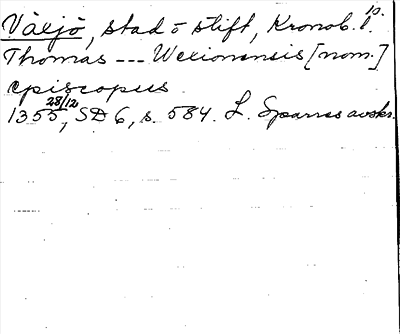 Växjö, stad o stift, Kronob. l.
Thomas --- Wexionensis [nom.]
episcopus
28/12
1355, SD 6, s. 584. L. Sparres avskr.